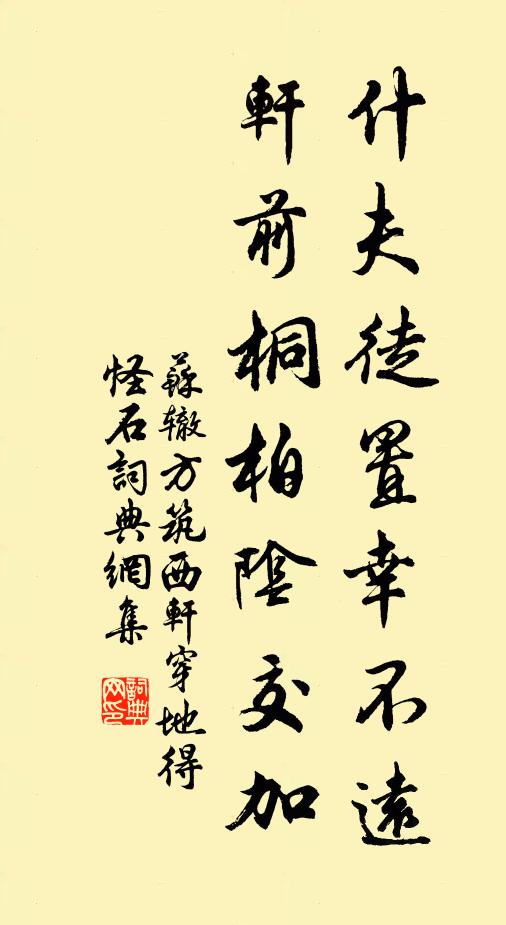 什夫徒置幸不遠
軒前桐柏陰交加
蘇辙方筑西軒穿地得
怪石詞典網集
詞典网印